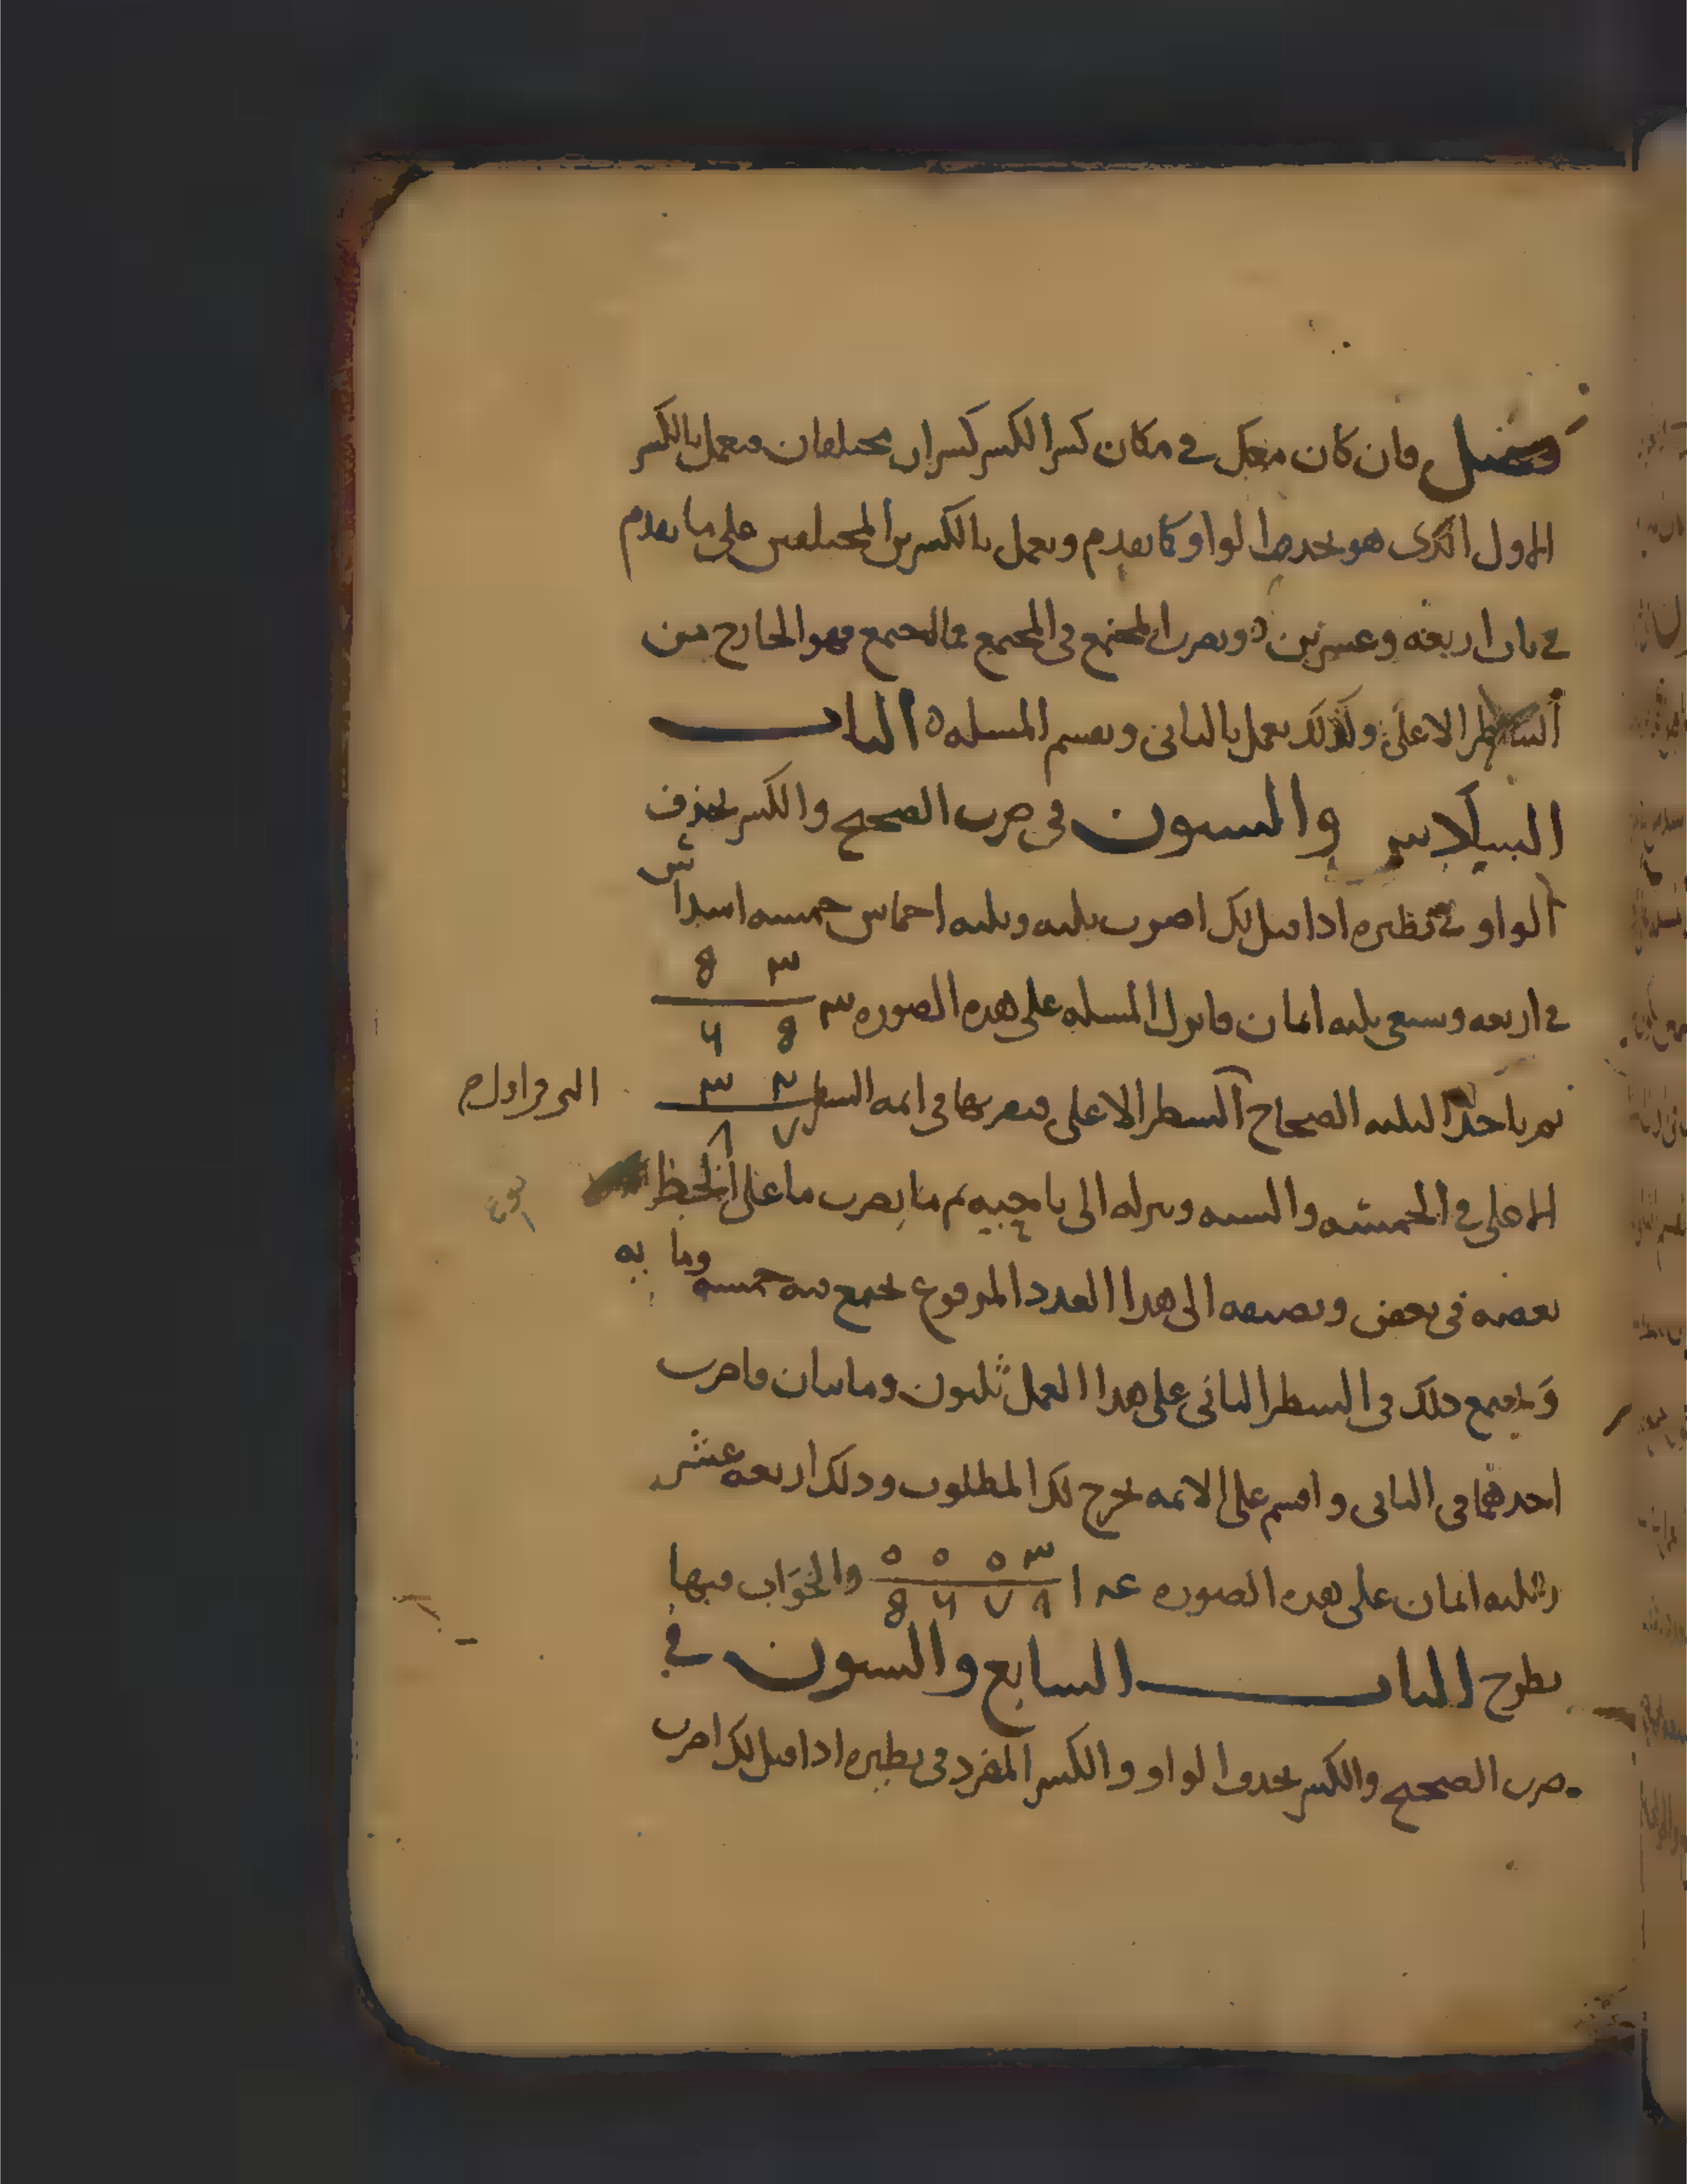 فصل فان كان معك في مكان كسر الكسر كسران مختلفان فتعمل بالكسر
الاول الذى هو بحذف الواو كما تقدم وتعمل بالكسرين المختلفين على ما تقدم
في باب اربعة وعشرين ٥ وتضرب المجتمع فى المجتمع فما اجتمع فهو الخارج من
السطر الاعلى ولذلك تعمل بالثانى وتقسم المسله ٥ الباب
السادس والستون فى ضرب الصحيح والكسر بحذف
الواو في نظيره اذا قيل لك اضرب ثلثه وثلثه اخماس خمسه اسداس
في اربعه وسبعى ثلثه اثمان فانزل المسله على هذه الصوره ٣ ٣ 8
8 ٦
ثم تاخذ الثلثه الصحاح السطر الاعلى فتضربها فى ائمه السطر ٢ ٣
٧ ٨
الاعلى في الخمسه والسته وتنزله الى ثم ما تضرب ما على الخط
بعضه فى بعض وتضيفه الى هذا العدد المرفوع تجمع منه خمسه وما يه
وتجمع ذلك فى السطر الثانى على هذا العمل ثلثون وماتان فاضرب
احدهما فى الثانى واقسم على الائمه يخرج لك المطلوب وذلك اربعه عشر
وثلثه اثمان على هذه الصوره ٣ ٥ ٥ ٥ والجواب فيها
٨ ٧ ٦ 8
بطرح الباب السابع والستون في
ضرب الصحيح والكسر بحذف الواو والكسر المفرد فى نظيره اذا قيل لك اضرب